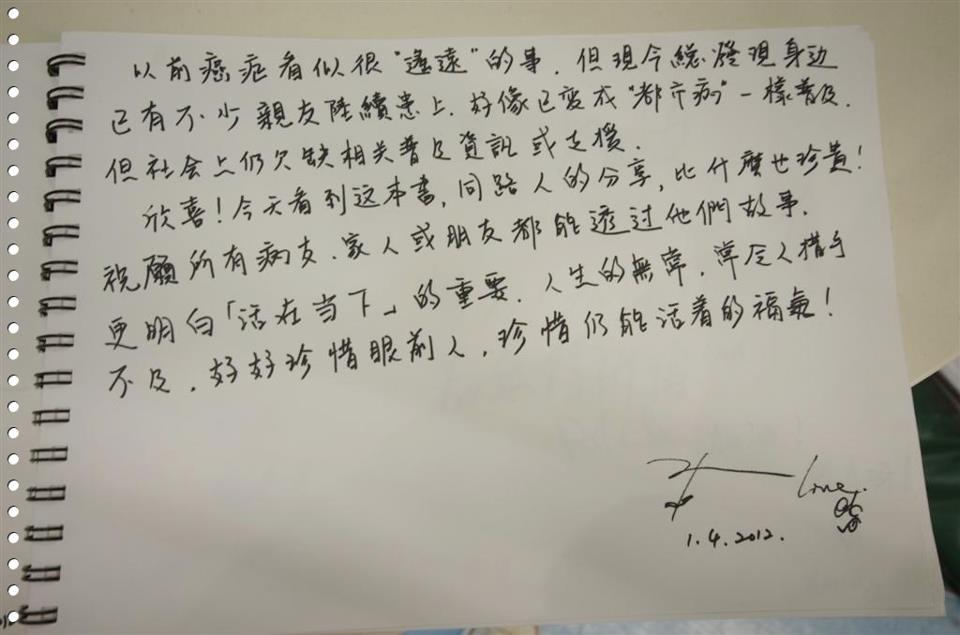 以前癌症看似很"遙遠"的事．但現今總發現身边
已有不少親友陸續患上．好像已变成"都市病"一樣普及．
但社会上仍欠缺相关普及資訊或支援．
欣喜！今天看到这本書，同路人的分享，比什麼也珍贵！
祝願所有病友、家人或朋友都能透过他們故事．
更明白「活在当下」的重要．人生的無常，常令人措手
不及．好好珍惜眼前人，珍惜仍能活着的福氣！
1.4.2012.